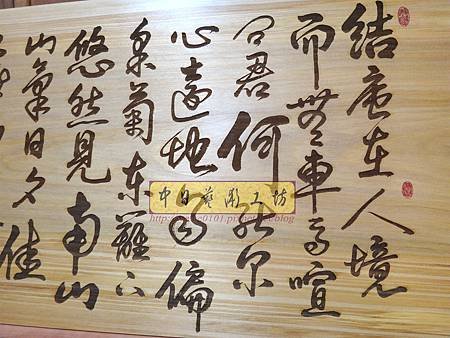 結廬在人境
而無車馬喧
問君何能爾
心遠地自偏
采菊東籬下
悠然見南山
山氣日夕佳
中日藝雕工坊